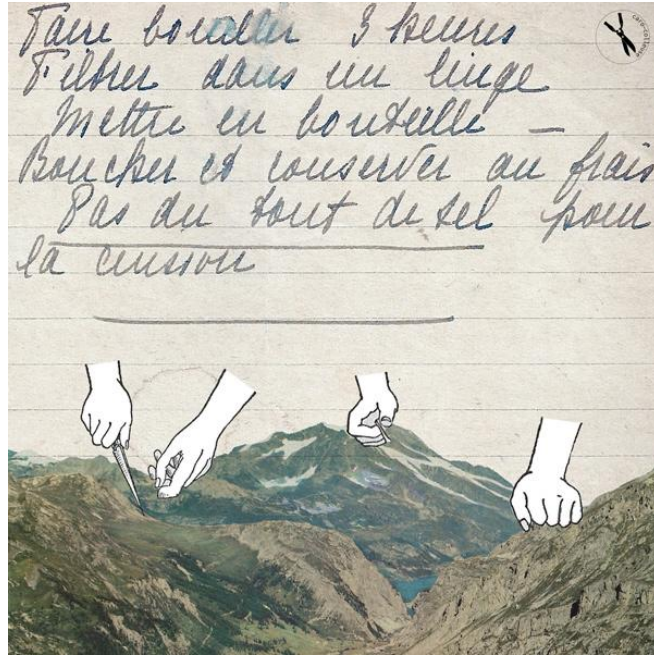 Faire bouillir 3 heures
Filtrer dans un linge
Mettre en bouteille —
Boucher et conserver au frais
Pas du tout de sel pour
la cuisson